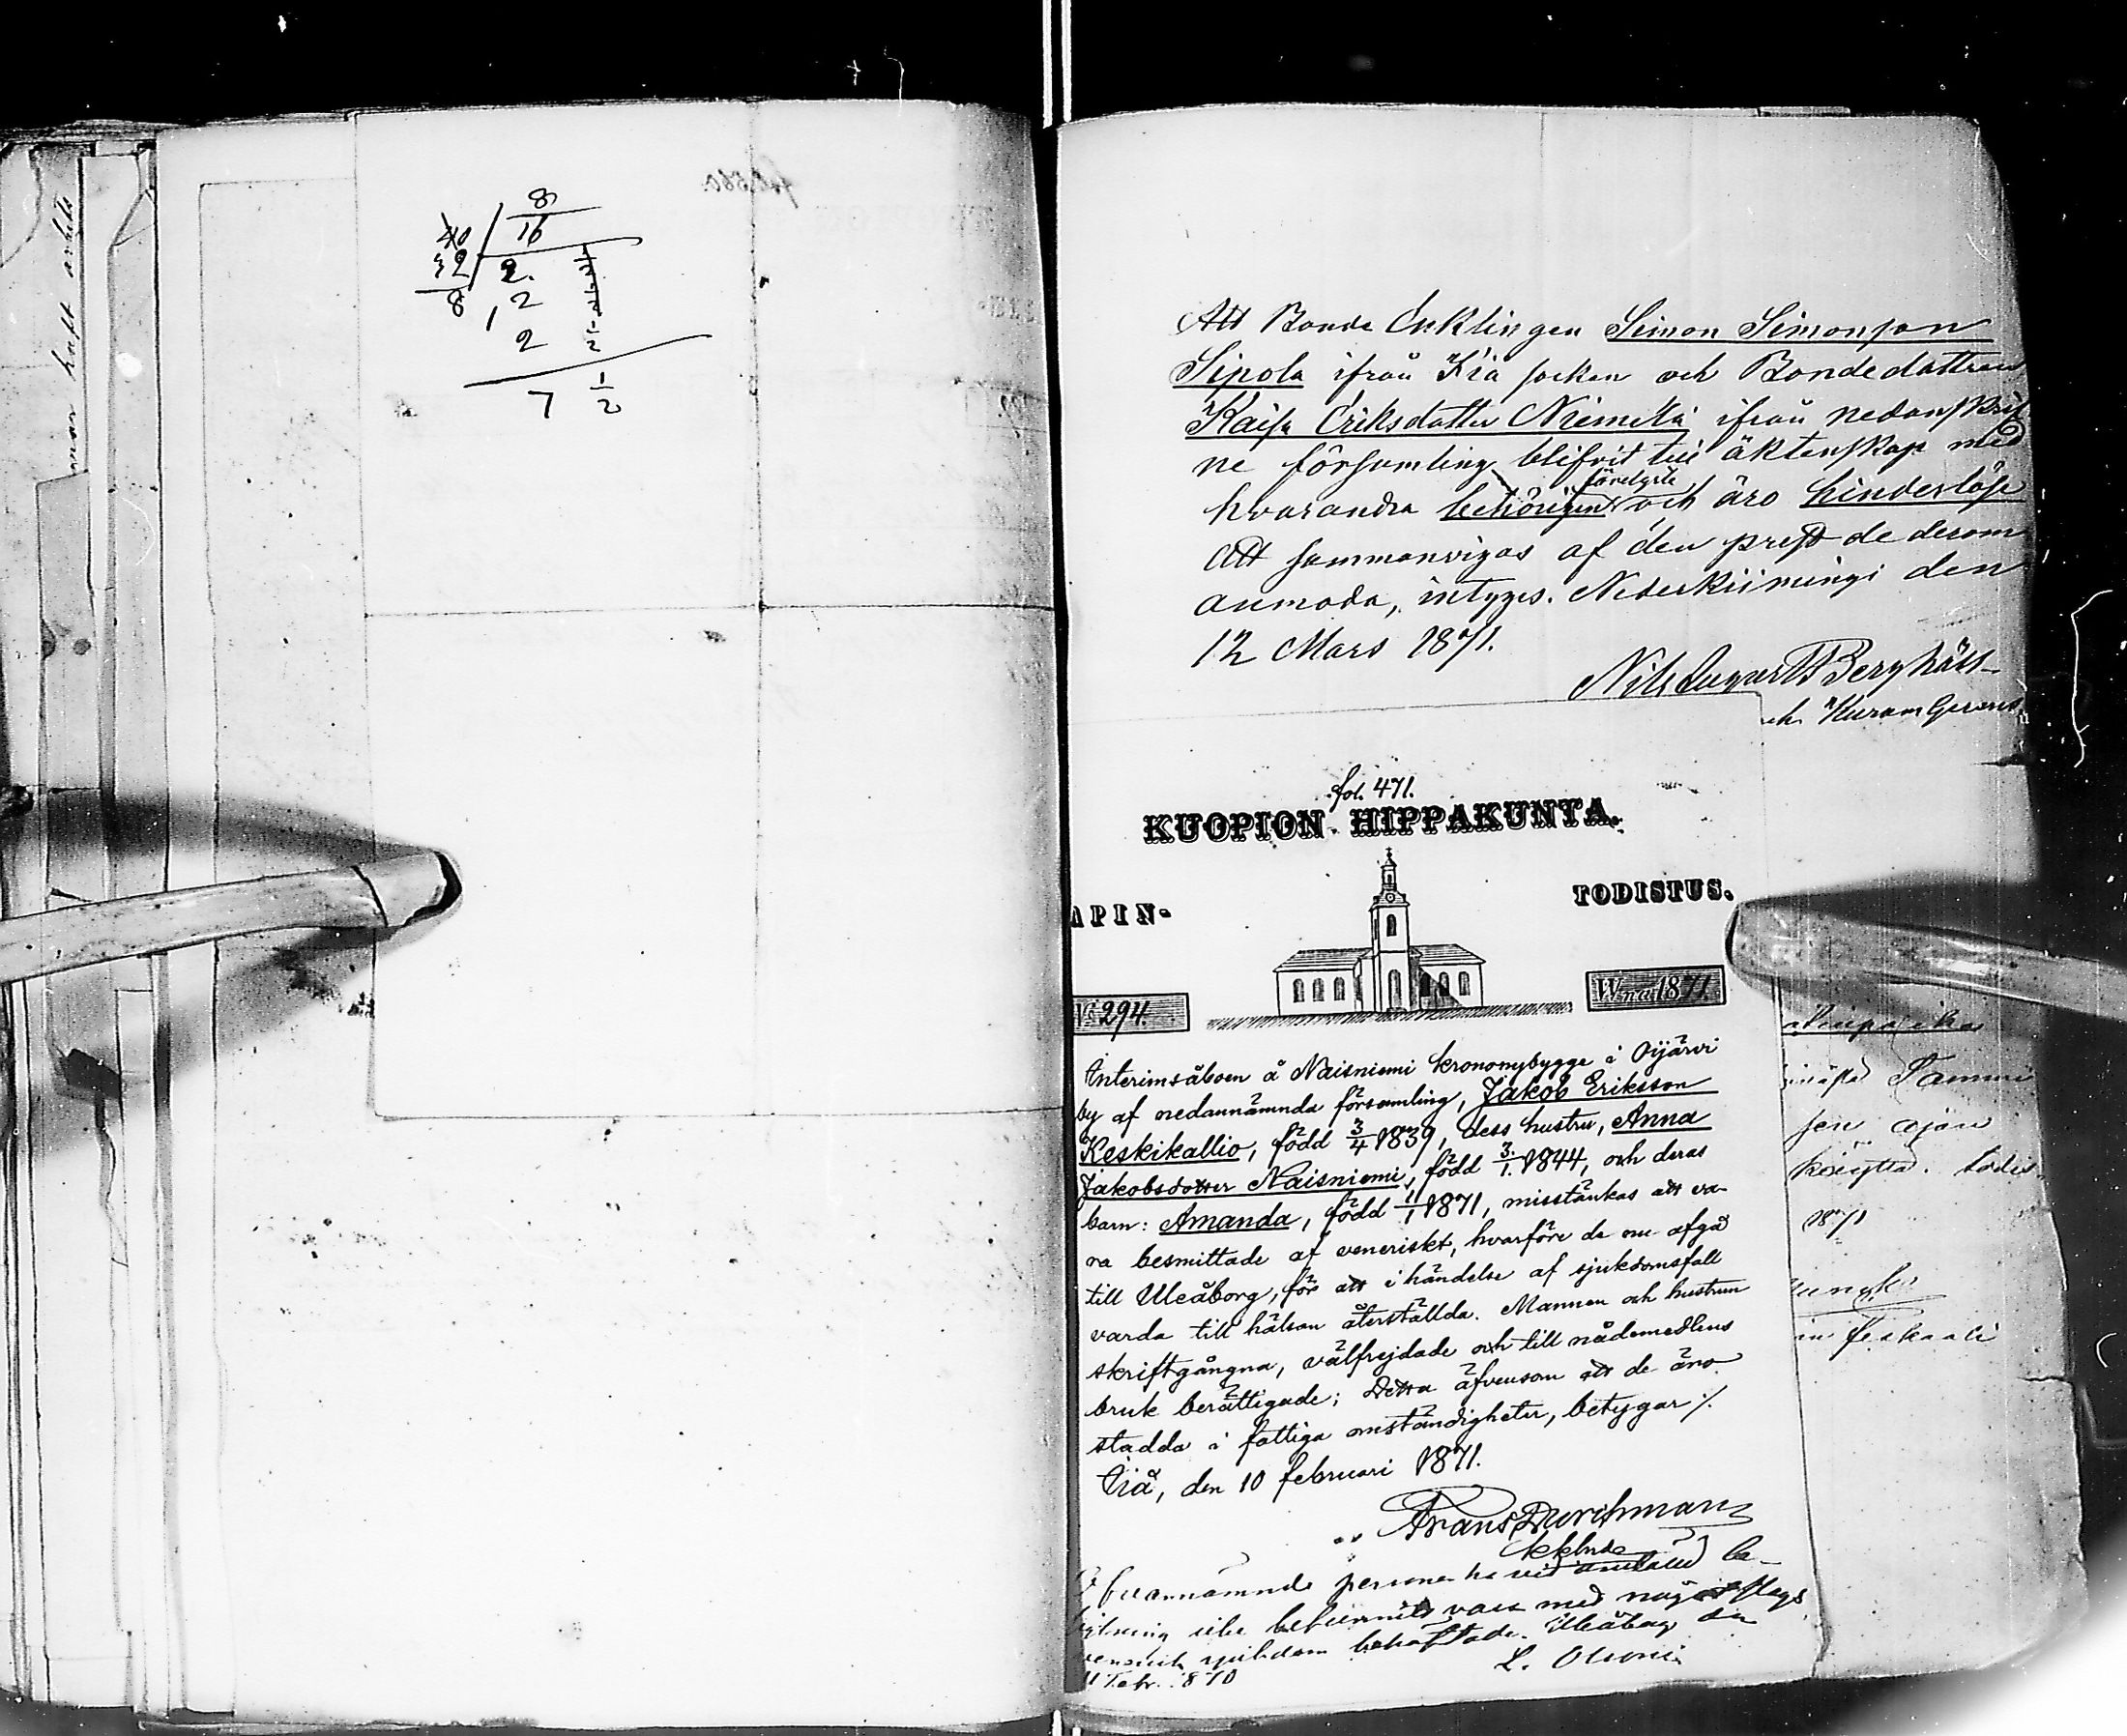 man haft arbete
8
40 16
32 2.
8 12
2 1/2
7 1/2
Att Bonde Enklingen Simon Simonsson
Sipola ifrån Iiå socken och Bondedottren
Kaisa Eriksdotter Niemelä ifrån nedanskrif
ne församling blifvit till äktenskap med
hvarandra behörigen förelyste och äro hinderlöse
att sammanvigas af den prest de derom
anmoda, intyges. Nederkiimingi den
12 Mars 1871.
Nils August Berghäll
fol. 471.
KUOPION HIPPAKUNTA.
APIN- TODISTUS.
No 294. Wna 1871.
Interimsåboen å Naisniemi krononybygge i Oijärvi
by af nedannämnda församling, Jakob Eriksson
Keskikallio, född 3/4 1839, dess hustru, Anna
Jakobsdotter Naisniemi, född 3/1 1844, och deras
barn: Amanda, född 1/1 1871, misstänkas att va-
ra besmittade af veneriskt, hvarföre de nu afgå
till Uleåborg, för att i händelse af sjukdomsfall
varda till hälsan återställda. Mannen och hustrun
skriftgångna, välfrejdade och till nådemedlens
bruk berättigade; Detta äfvensom att de äro
stadda i fattiga omständigheter, betygar ./.
Iiå, den 10 februari 1871.
Frans Durchman
kkhrde
Ofvannämnde personer ha vid anstäld be-
sigtning icke befunnits vara med något slags
venerisk sjukdom behäftade. Uleåborg den
11 Febr. 1870
Tammi
sen ajan
käyttä. todis
1871